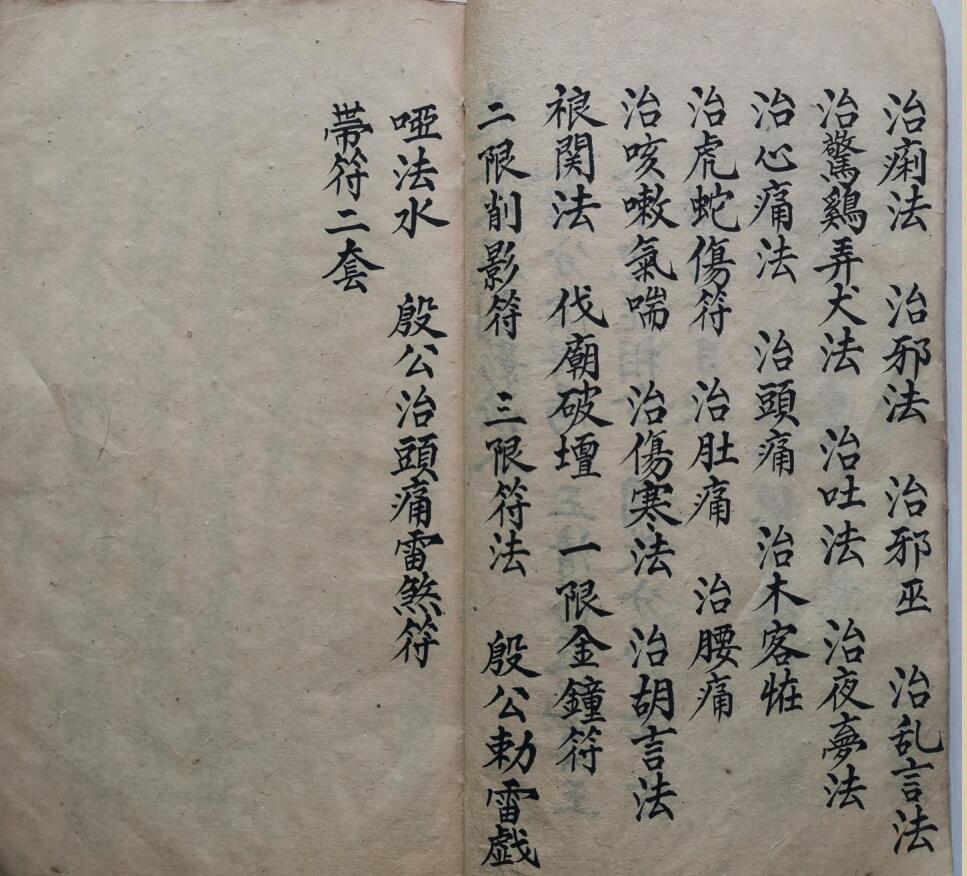 治痢法　治邪法　治邪巫　治乱言法
治驚鷄弄犬法　治吐法　治夜夢法
治心痛法　治頭痛　治木客恠
治虎蛇傷符　治肚痛　治腰痛
治咳嗽氣喘　治傷寒法　治胡言法
裉関法　伐廟破壇　一限金鐘符
二限削影符　三限符法　殷公勅雷戯
啞法水　殷公治頭痛雷煞符
帯符二套